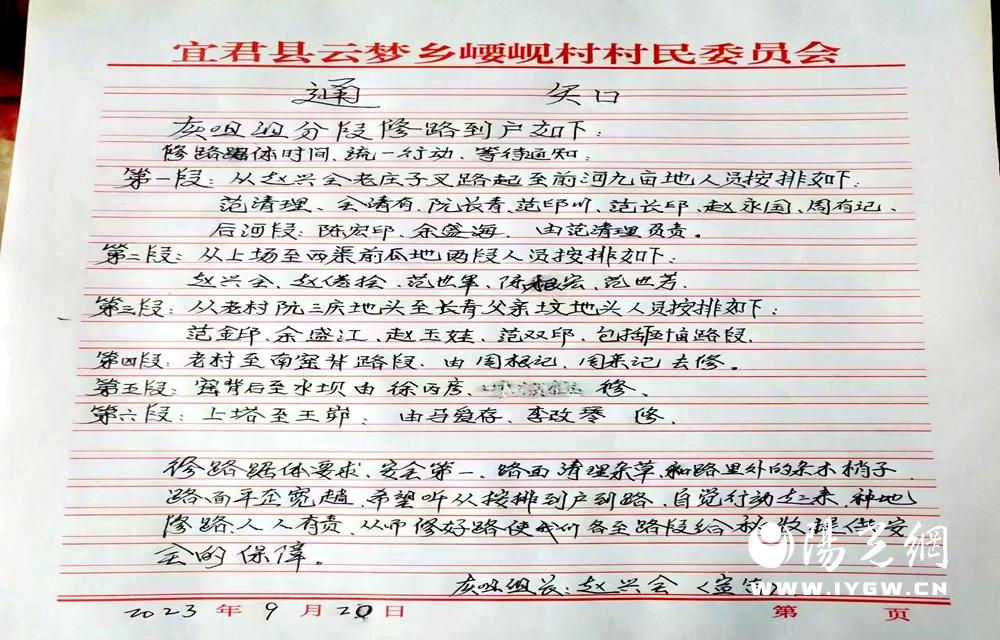 宜君县云梦乡崾岘村村民委员会
通 知
灰咀组分段修路到户如下：
修路踞体时间、统一行动、等待通知：
第一段：从赵兴会老庄子叉路起至前河九亩地人员按排如下：
范清理、会清有、阮长青、范印川、范长印、赵永国、周有记、
后河段：陈宏印、余盛海、由范清理负责。
第二段：从上场至西渠前瓜地两段人员按排如下：
赵兴会、赵 范世军、陈 宏、范世芳
第三段：从老村阮三庆地头至长青父亲坟地头人员按排如下：
范金印、余盛江、赵玉娃、范双印、包括 路段、
第四段：老村至南窑背路段、由周根记、周来记去修。
第五段：窑背后至水坝由徐丙彦、 修、
第六段：上塔至王峁、由马爱存、李改琴 修、
修路踞体要求、安全第一、路面清理杂草、和路里外的杂木梢子
路面平 宽 、希望听从按排到户到路、自觉行动起来、种地、
修路、人人有责、从而修好路使我们各至路段给秋收提供安
全的保障。
灰咀组长：赵兴会（宣
2023 年 9 月 20 日
第 页
陽光網
WWW.IYGW.CN